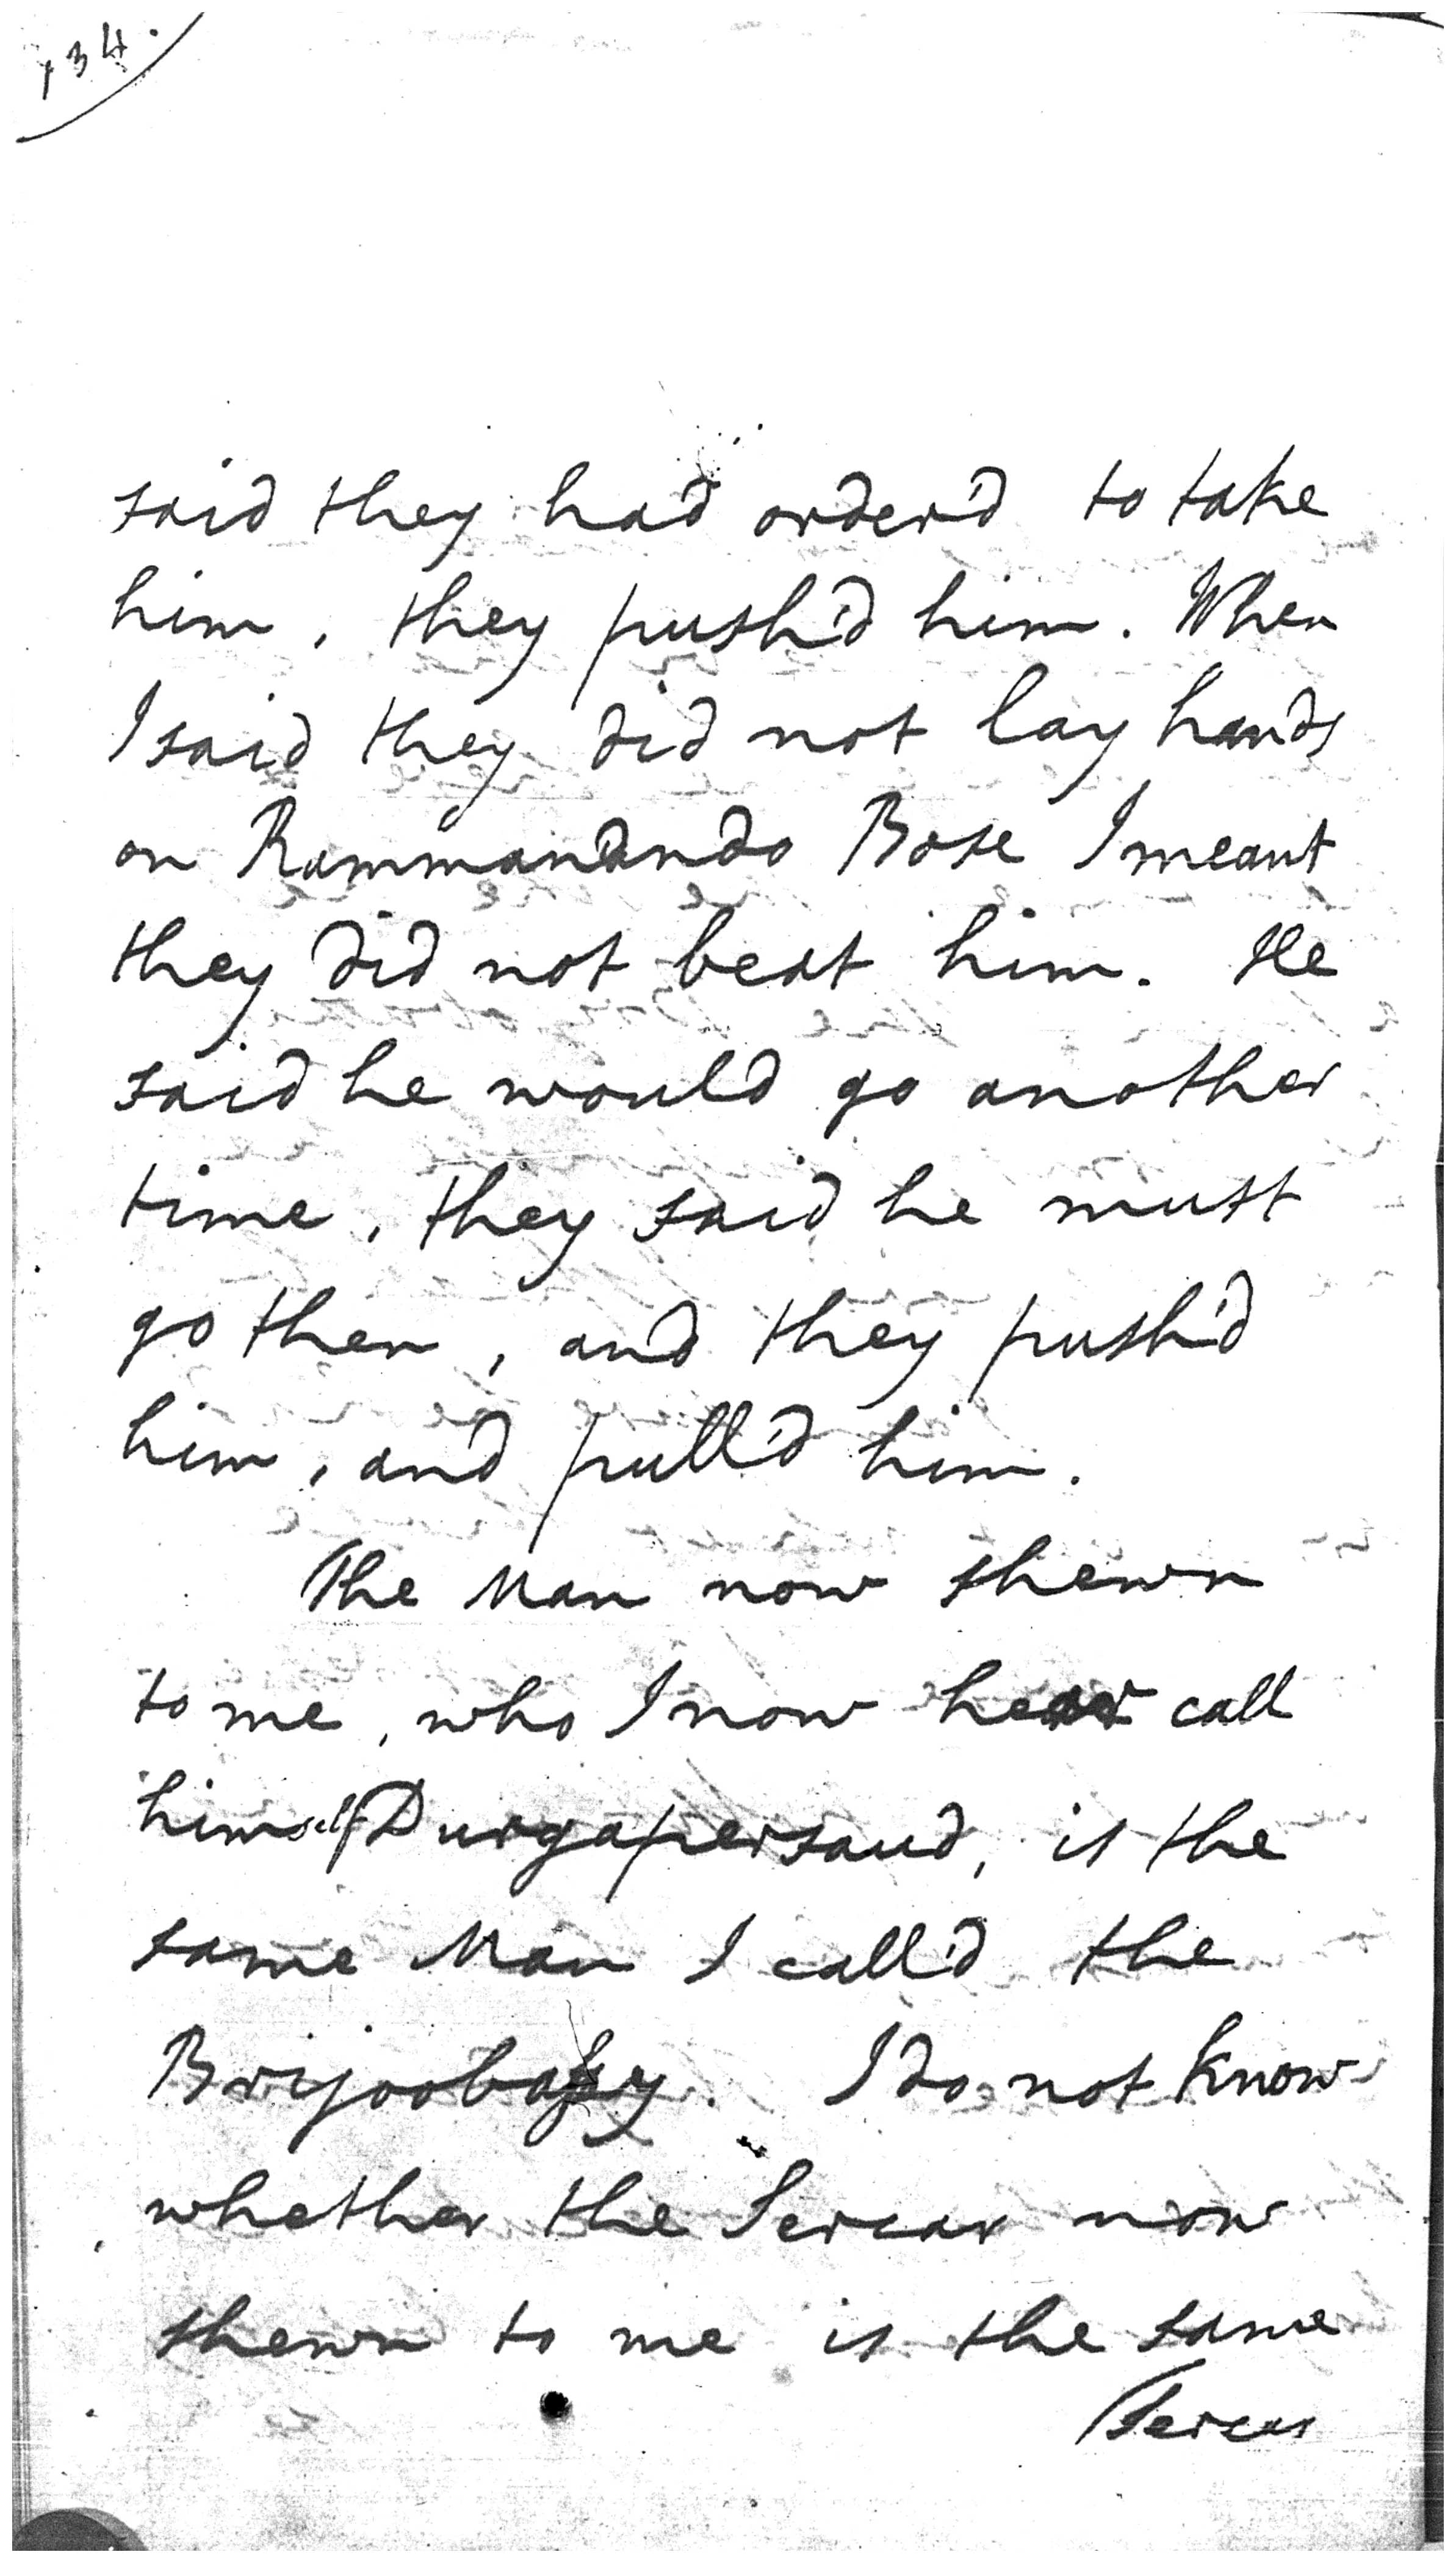 134.
said they had order'd to take
him, they push'd him. When
I said they did not lay hands
on Rammanando Bose I meant
they did not beat him. He
said he would go another
time, they said he must
go then, and they push'd
him, and pull'd him.
The Man now shewn
to me, who I now hear call
himself Durgapersaud, is the
same Man I call'd the
Brijoobassy. I do not know
whether the Sercar now
shewn to me is the same
Sercar